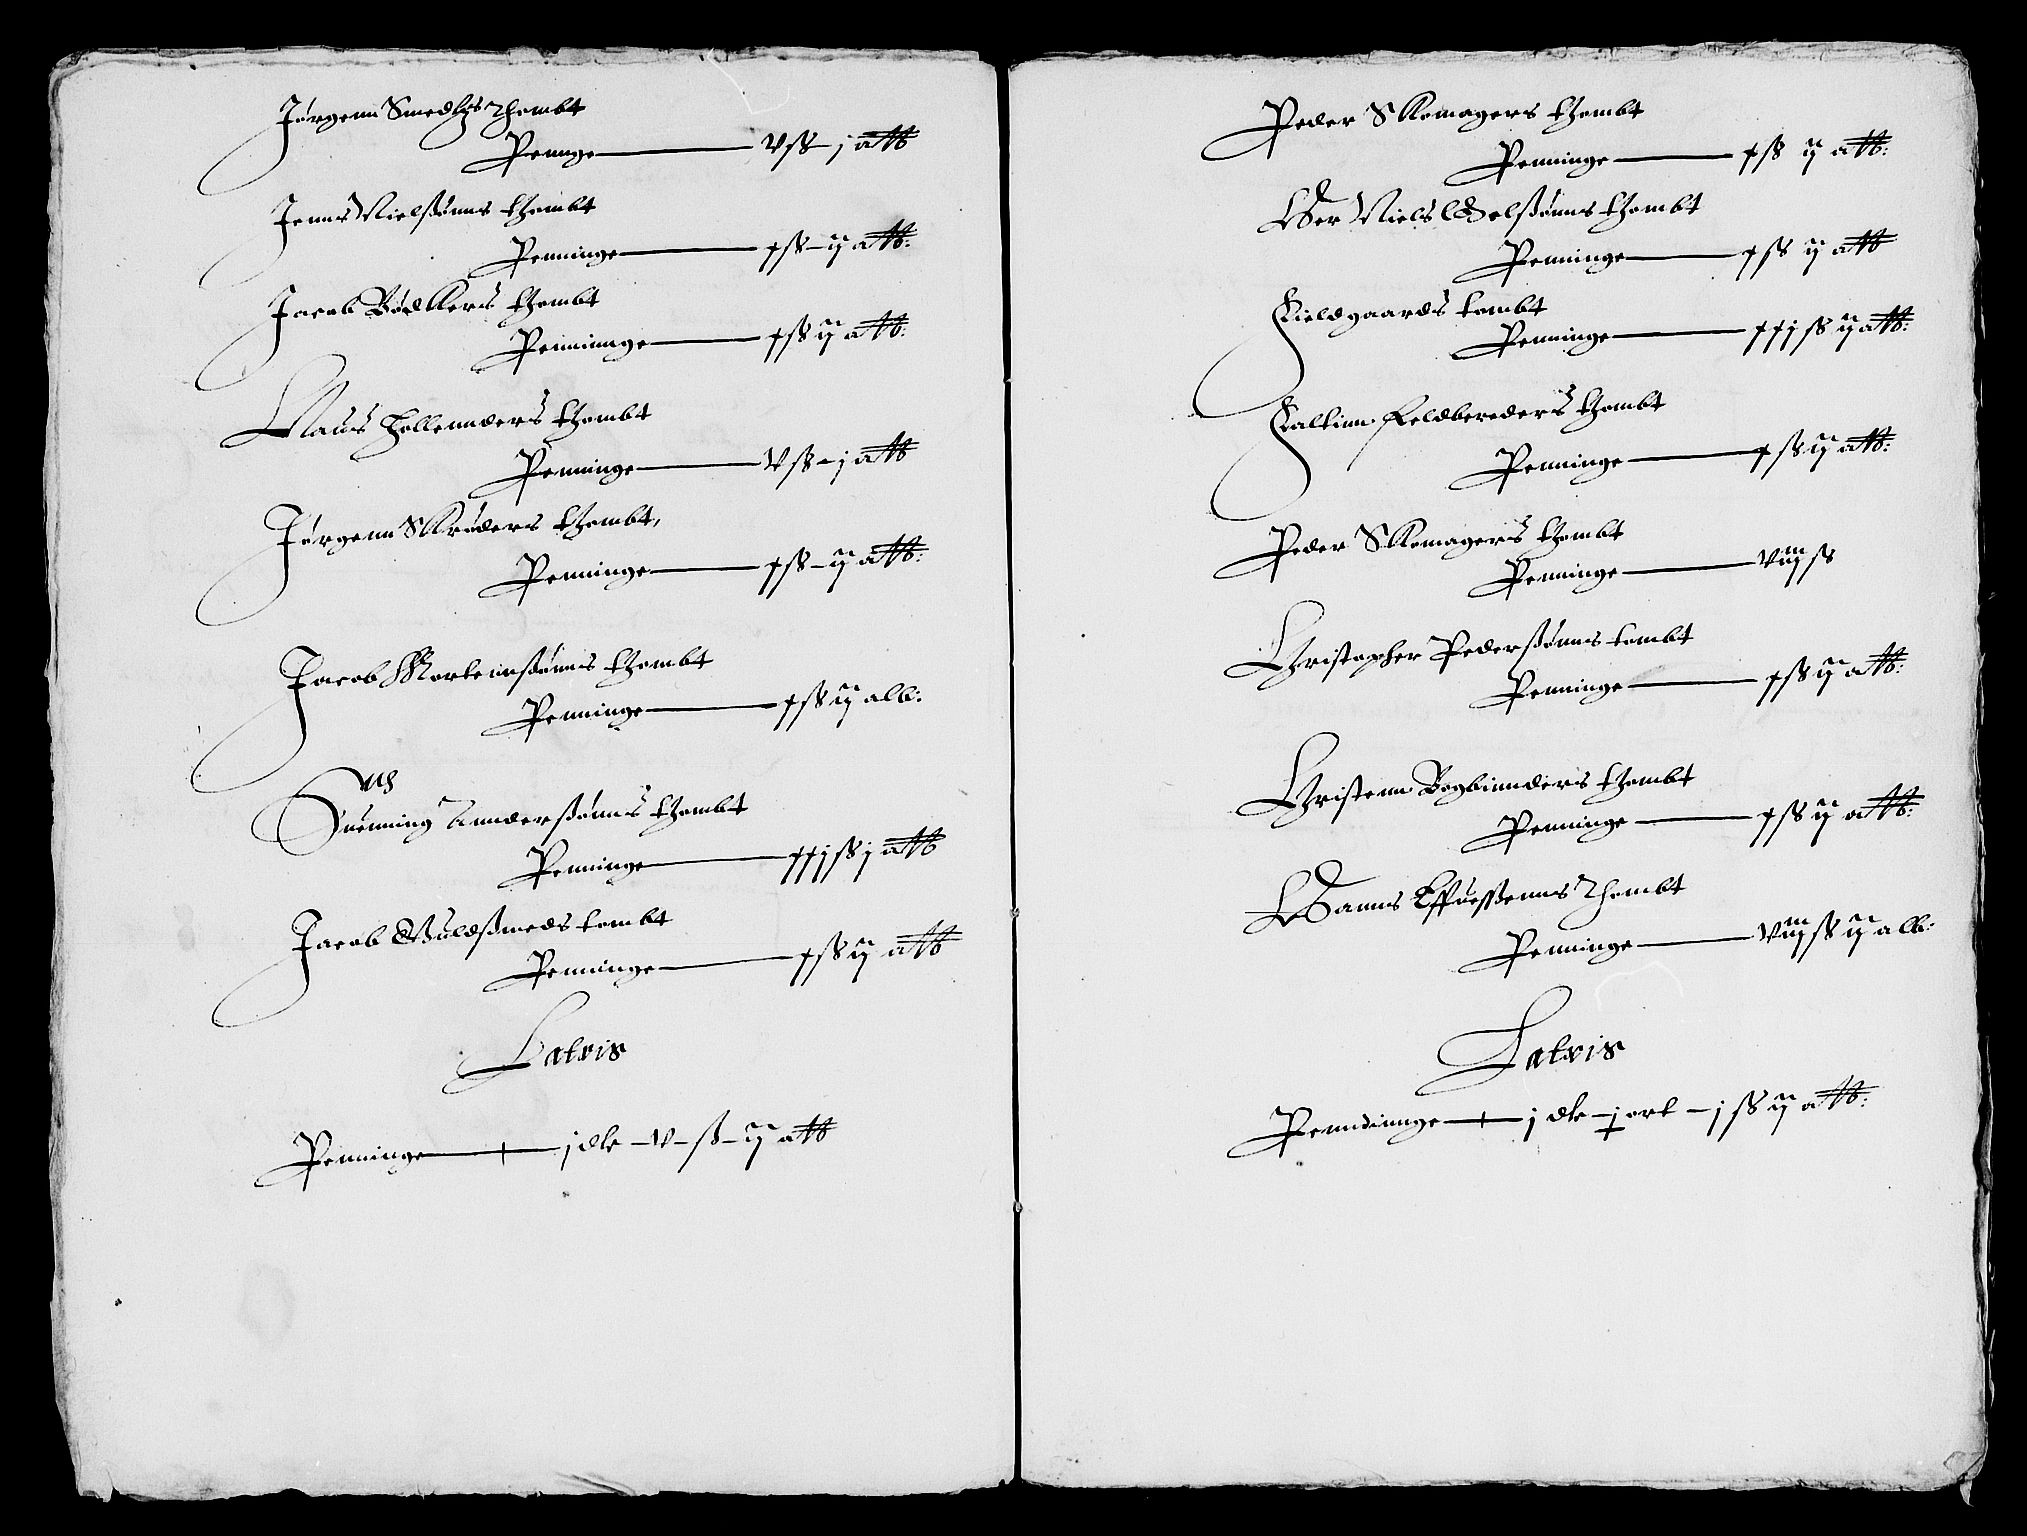 Jørgenn Smedtz Thombt
Peninge — v ß – j alb
Jenns Nielßønns thombt
Penninge — x ß – ij alb:
Jacob Bødkers thombt
Pennínnge — x ß ij alb:
Claus Hollennders thombt
Penninge — v ß – j alb
Jørgenn Skrøders thombt,
Penninge — x ß – ij alb:
Jacob Mortennßønns thombt
Penninge — x ß ij alb:
Suenning Annderßønns thombt
Penninge — xxj ß j alb
Jacob Guldßmeds tombt
Penninge — x ß ij alb
Lateris
Penninge — j dlr – v – ß – ij alb
Peder Skomagers thombt
Penninge — x ß ij alb:
Her Niels Olßønns thombt
Penninge — x ß ij alb
Fieldgaards tombt
Penninge — xxj ß ij alb:
Faltinn Feldbereders thombt
Penninge — x ß ij alb:
Peder Skomagers thombt
Penninge — viij ß
Christopher Pederßønns tombt
Penninge — x ß ij alb:
Christenn Bogbinnders thombt
Penninge — x ß ij alb:
Hanns Thombt
Penninge — viij ß ij alb:
Lateris
Penndinnge — j dlr – j ort – j ß ij alb: